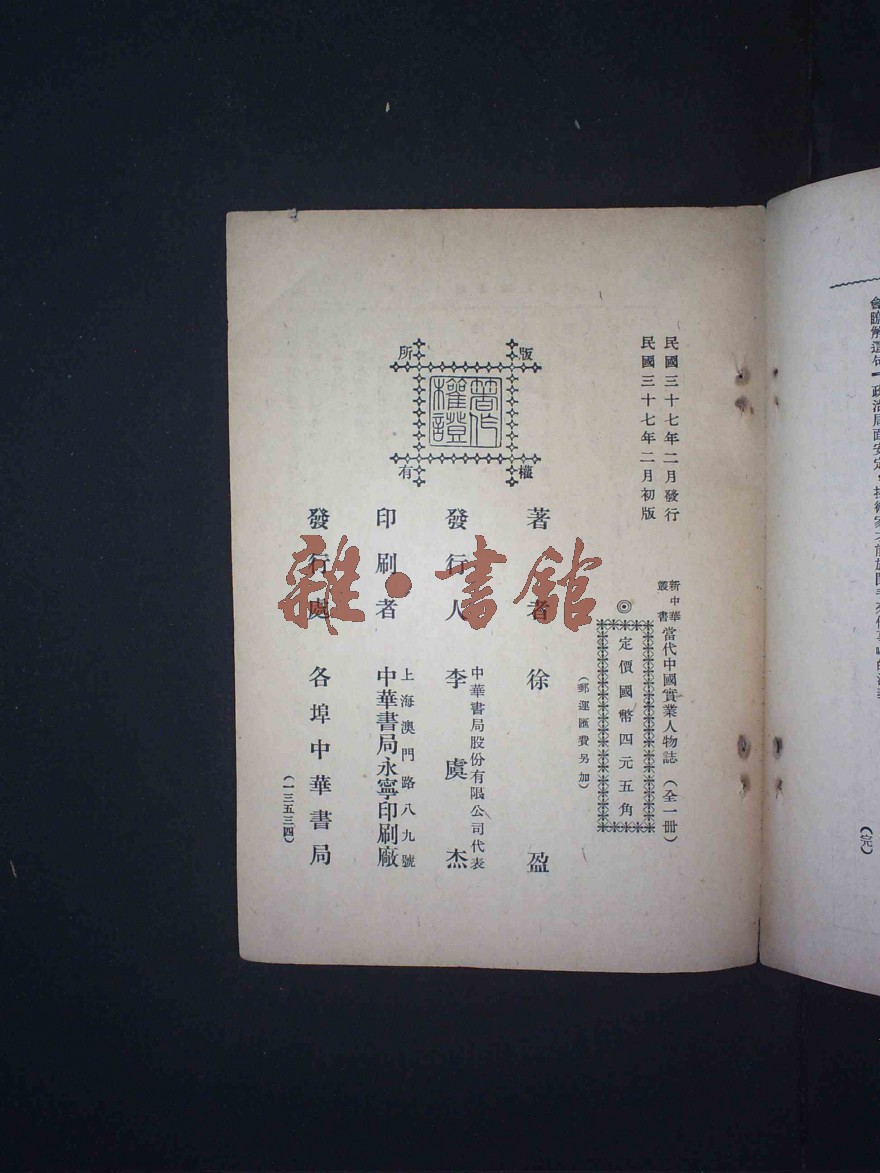 民國三十七年二月發行
民國三十七年二月初版
新中華
叢書
當代中國實業人物誌（全一冊）
◎
定價國幣四元五角
（郵運匯費另加）
著者 徐盈
發行人 李虞杰
中華書局股份有限公司代表
印刷者 中華書局永寧印刷廠
上海澳門路八九號
發行處 各埠中華書局
（一三五三四）
版權所有
著作權證
雜·書館
政治局面安定，
（完）